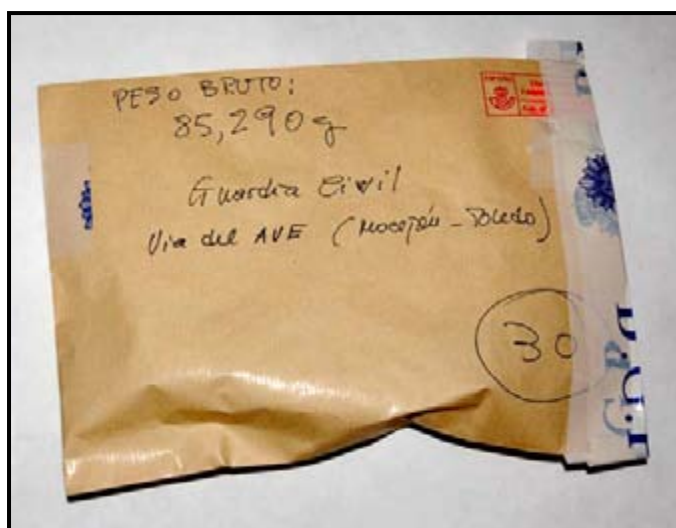 PESO BRUTO:
85,290g
Guardia Civil
Via del AVE (Mocejón - Toledo)
30